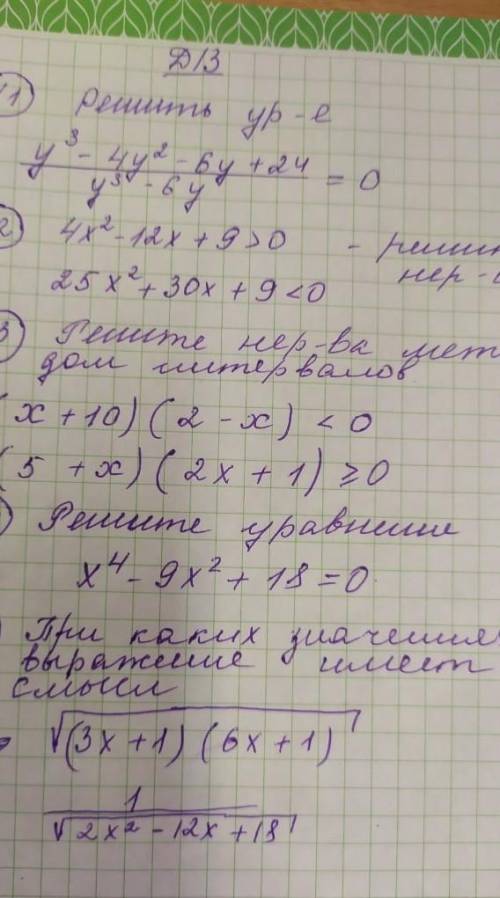 Д/З
1) решить ур-е
(y³ - 4y² - 6y + 24) / (y³ - 6y) = 0
2) 4x² - 12x + 9 > 0 -
25x² + 30x + 9 < 0 нер-
3) Решите нер-ва мет
дом интервалов
(x + 10)(2 - x) < 0
(5 + x)(2x + 1) ≥ 0
) Решите уравнение
x⁴ - 9x² + 18 = 0
) При каких значения
выражение имеет
смысл
√((3x + 1)(6x + 1))
1 / √(2x² - 12x + 18)